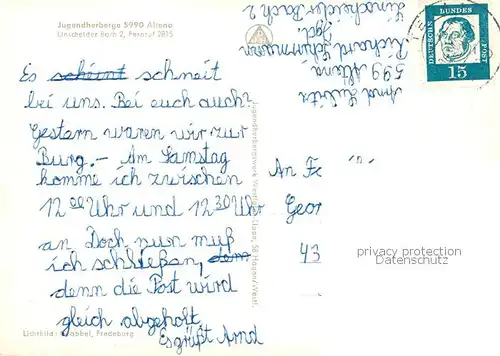 Jugendherberge 5990 Altena
Linscheider Bach 2, Fernruf 2815
Es scheint schneit
bei uns. Bei euch auch?
Gestern waren wir zur
Burg.- Am Samstag
komme ich zwischen
12 00 Uhr und 12 30 Uhr
an. Doch nun muß
ich schließen, dem
denn die Post wird
gleich abgeholt.
Es grüßt Arnd
Lichtbild: Grobbel, Fredeburg
Jugendherbergswerk Westfalen-Lippe, 58 Hagen/Westf.
Arnd
Richard Schirrmann
599 Altena
Linscheider Bach 2
DEUTSCHE BUNDESPOST
15
An Fa
Geor
43
privacy protection
Datenschutz